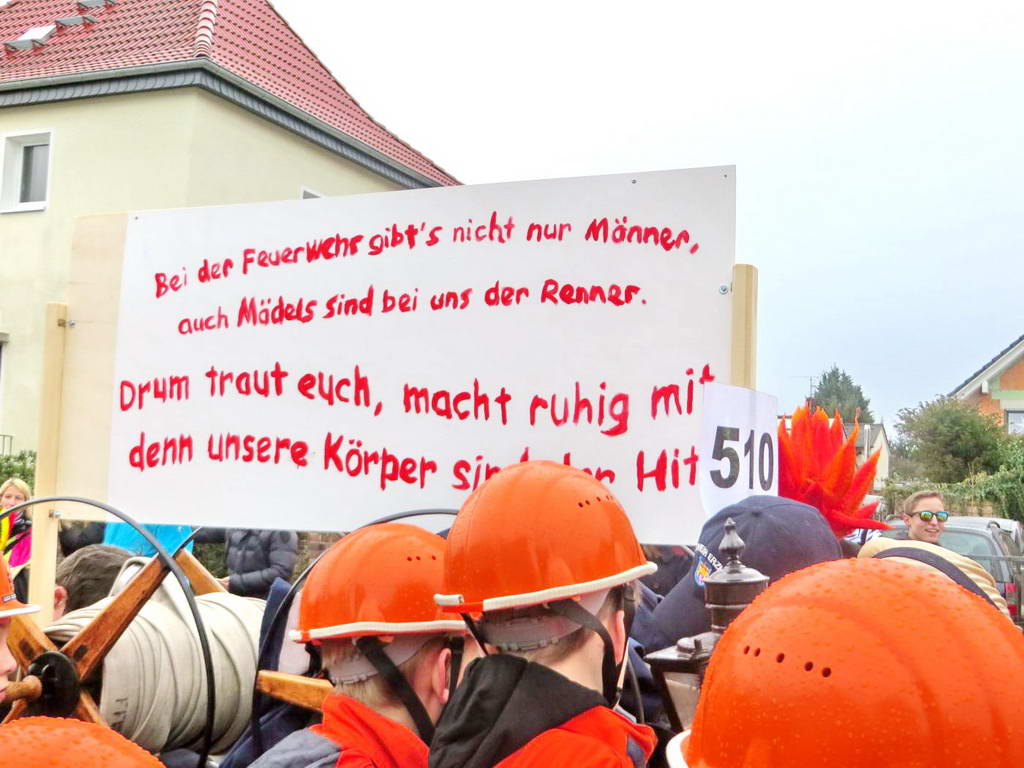 Bei der Feuerwehr gibt's nicht nur Männer,
auch Mädels sind bei uns der Renner.
Drum traut euch, macht ruhig mit
denn unsere Körper sind der Hit
510